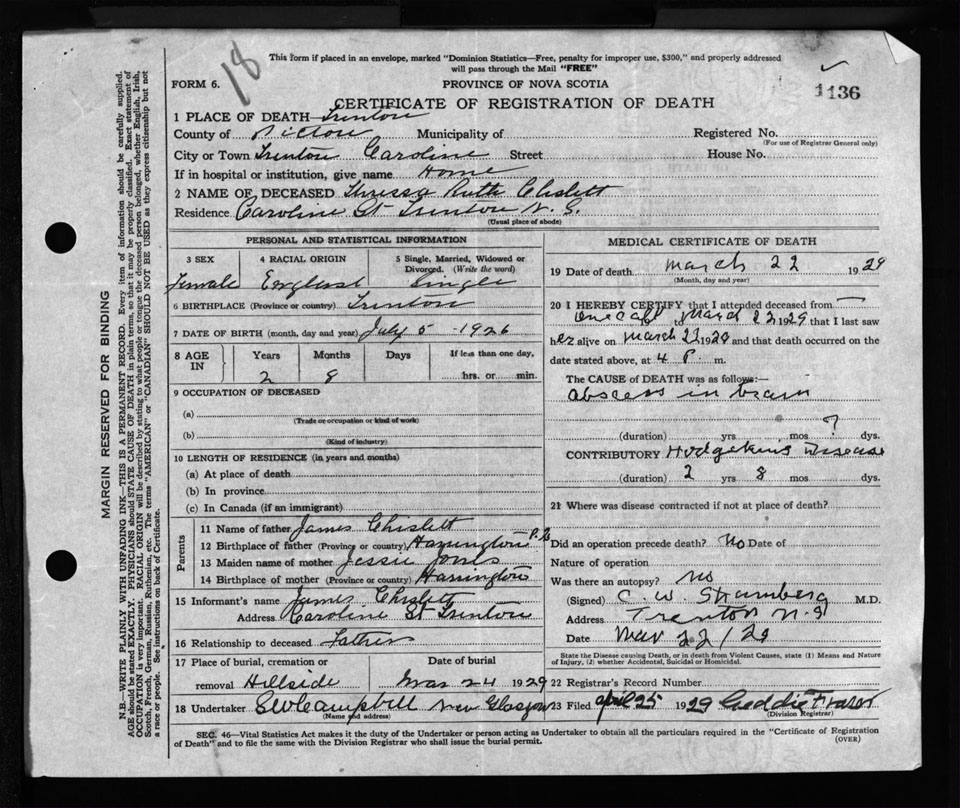 18
This form if placed in an envelope, marked "Dominion Statistics—Free, penalty for improper use, $300," and properly addressed
will pass through the Mail "FREE"
FORM 6.
PROVINCE OF NOVA SCOTIA
1136
CERTIFICATE OF REGISTRATION OF DEATH
1 PLACE OF DEATH Trenton
County of Pictou Municipality of Registered No.
(For use of Registrar General only)
City or Town Trenton Caroline Street House No.
If in hospital or institution, give name Home
2 NAME OF DECEASED Ruth Chislett
Residence Caroline St Trenton N. S.
(Usual place of abode)
MARGIN RESERVED FOR BINDING
N.B.—WRITE PLAINLY WITH UNFADING INK—THIS IS A PERMANENT RECORD. Every item of information should be carefully supplied.
AGE should be stated EXACTLY. PHYSICIANS should STATE CAUSE OF DEATH in plain terms, so that it may be properly classified. Exact statement of
OCCUPATION is very important. RACIAL ORIGIN will be described by stating to what people or tongue the deceased person belonged, whether English, Irish,
Scotch, French, German, Russian, Ruthenian, etc. The terms "AMERICAN" or "CANADIAN" SHOULD NOT BE USED as they express citizenship but not
a race or people. See instructions on back of Certificate.
PERSONAL AND STATISTICAL INFORMATION
3 SEX 4 RACIAL ORIGIN 5 Single, Married, Widowed or
Divorced. (Write the word)
Female English Single
6 BIRTHPLACE (Province or country) Trenton
7 DATE OF BIRTH (month, day and year) July 5 - 1926
8 AGE IN Years Months Days If less than one day,
2 8 hrs. or min.
9 OCCUPATION OF DECEASED
(a)
(Trade or occupation or kind of work)
(b)
(Kind of industry)
10 LENGTH OF RESIDENCE (in years and months)
(a) At place of death
(b) In province
(c) In Canada (if an immigrant)
Parents
11 Name of father James Chislett
12 Birthplace of father (Province or country) Harrington P.Q.
13 Maiden name of mother Jessie Jones
14 Birthplace of mother (Province or country) Harrington
15 Informant's name James Chislett
Address Caroline St Trenton
16 Relationship to deceased Father
17 Place of burial, cremation or Date of burial
removal Hillside Mar 24 1929
18 Undertaker E W Campbell New Glasgow
(Name and address)
MEDICAL CERTIFICATE OF DEATH
19 Date of death March 22 1929
(Month, day and year)
20 I HEREBY CERTIFY that I attended deceased from —
one call 19 to March 22 1929 that I last saw
her alive on March 22 1929 and that death occurred on the
date stated above, at 4 P. m.
The CAUSE of DEATH was as follows:—
abscess in brain
(duration) yrs mos ? dys.
CONTRIBUTORY Hodgekins Disease
(duration) 2 yrs 8 mos dys.
21 Where was disease contracted if not at place of death?
Did an operation precede death? No Date of
Nature of operation
Was there an autopsy? no
(Signed) C. W. M.D.
Address Trenton N.S
Date Mar 22/29
State the Disease causing Death, or in death from Violent Causes, state (1) Means and Nature
of Injury, (2) whether Accidental, Suicidal or Homicidal.
22 Registrar's Record Number
23 Filed April 25 1929 Geddie Fraser
(Division Registrar)
SEC. 46—Vital Statistics Act makes it the duty of the Undertaker or person acting as Undertaker to obtain all the particulars required in the "Certificate of Registration
of Death" and to file the same with the Division Registrar who shall issue the burial permit.
(OVER)